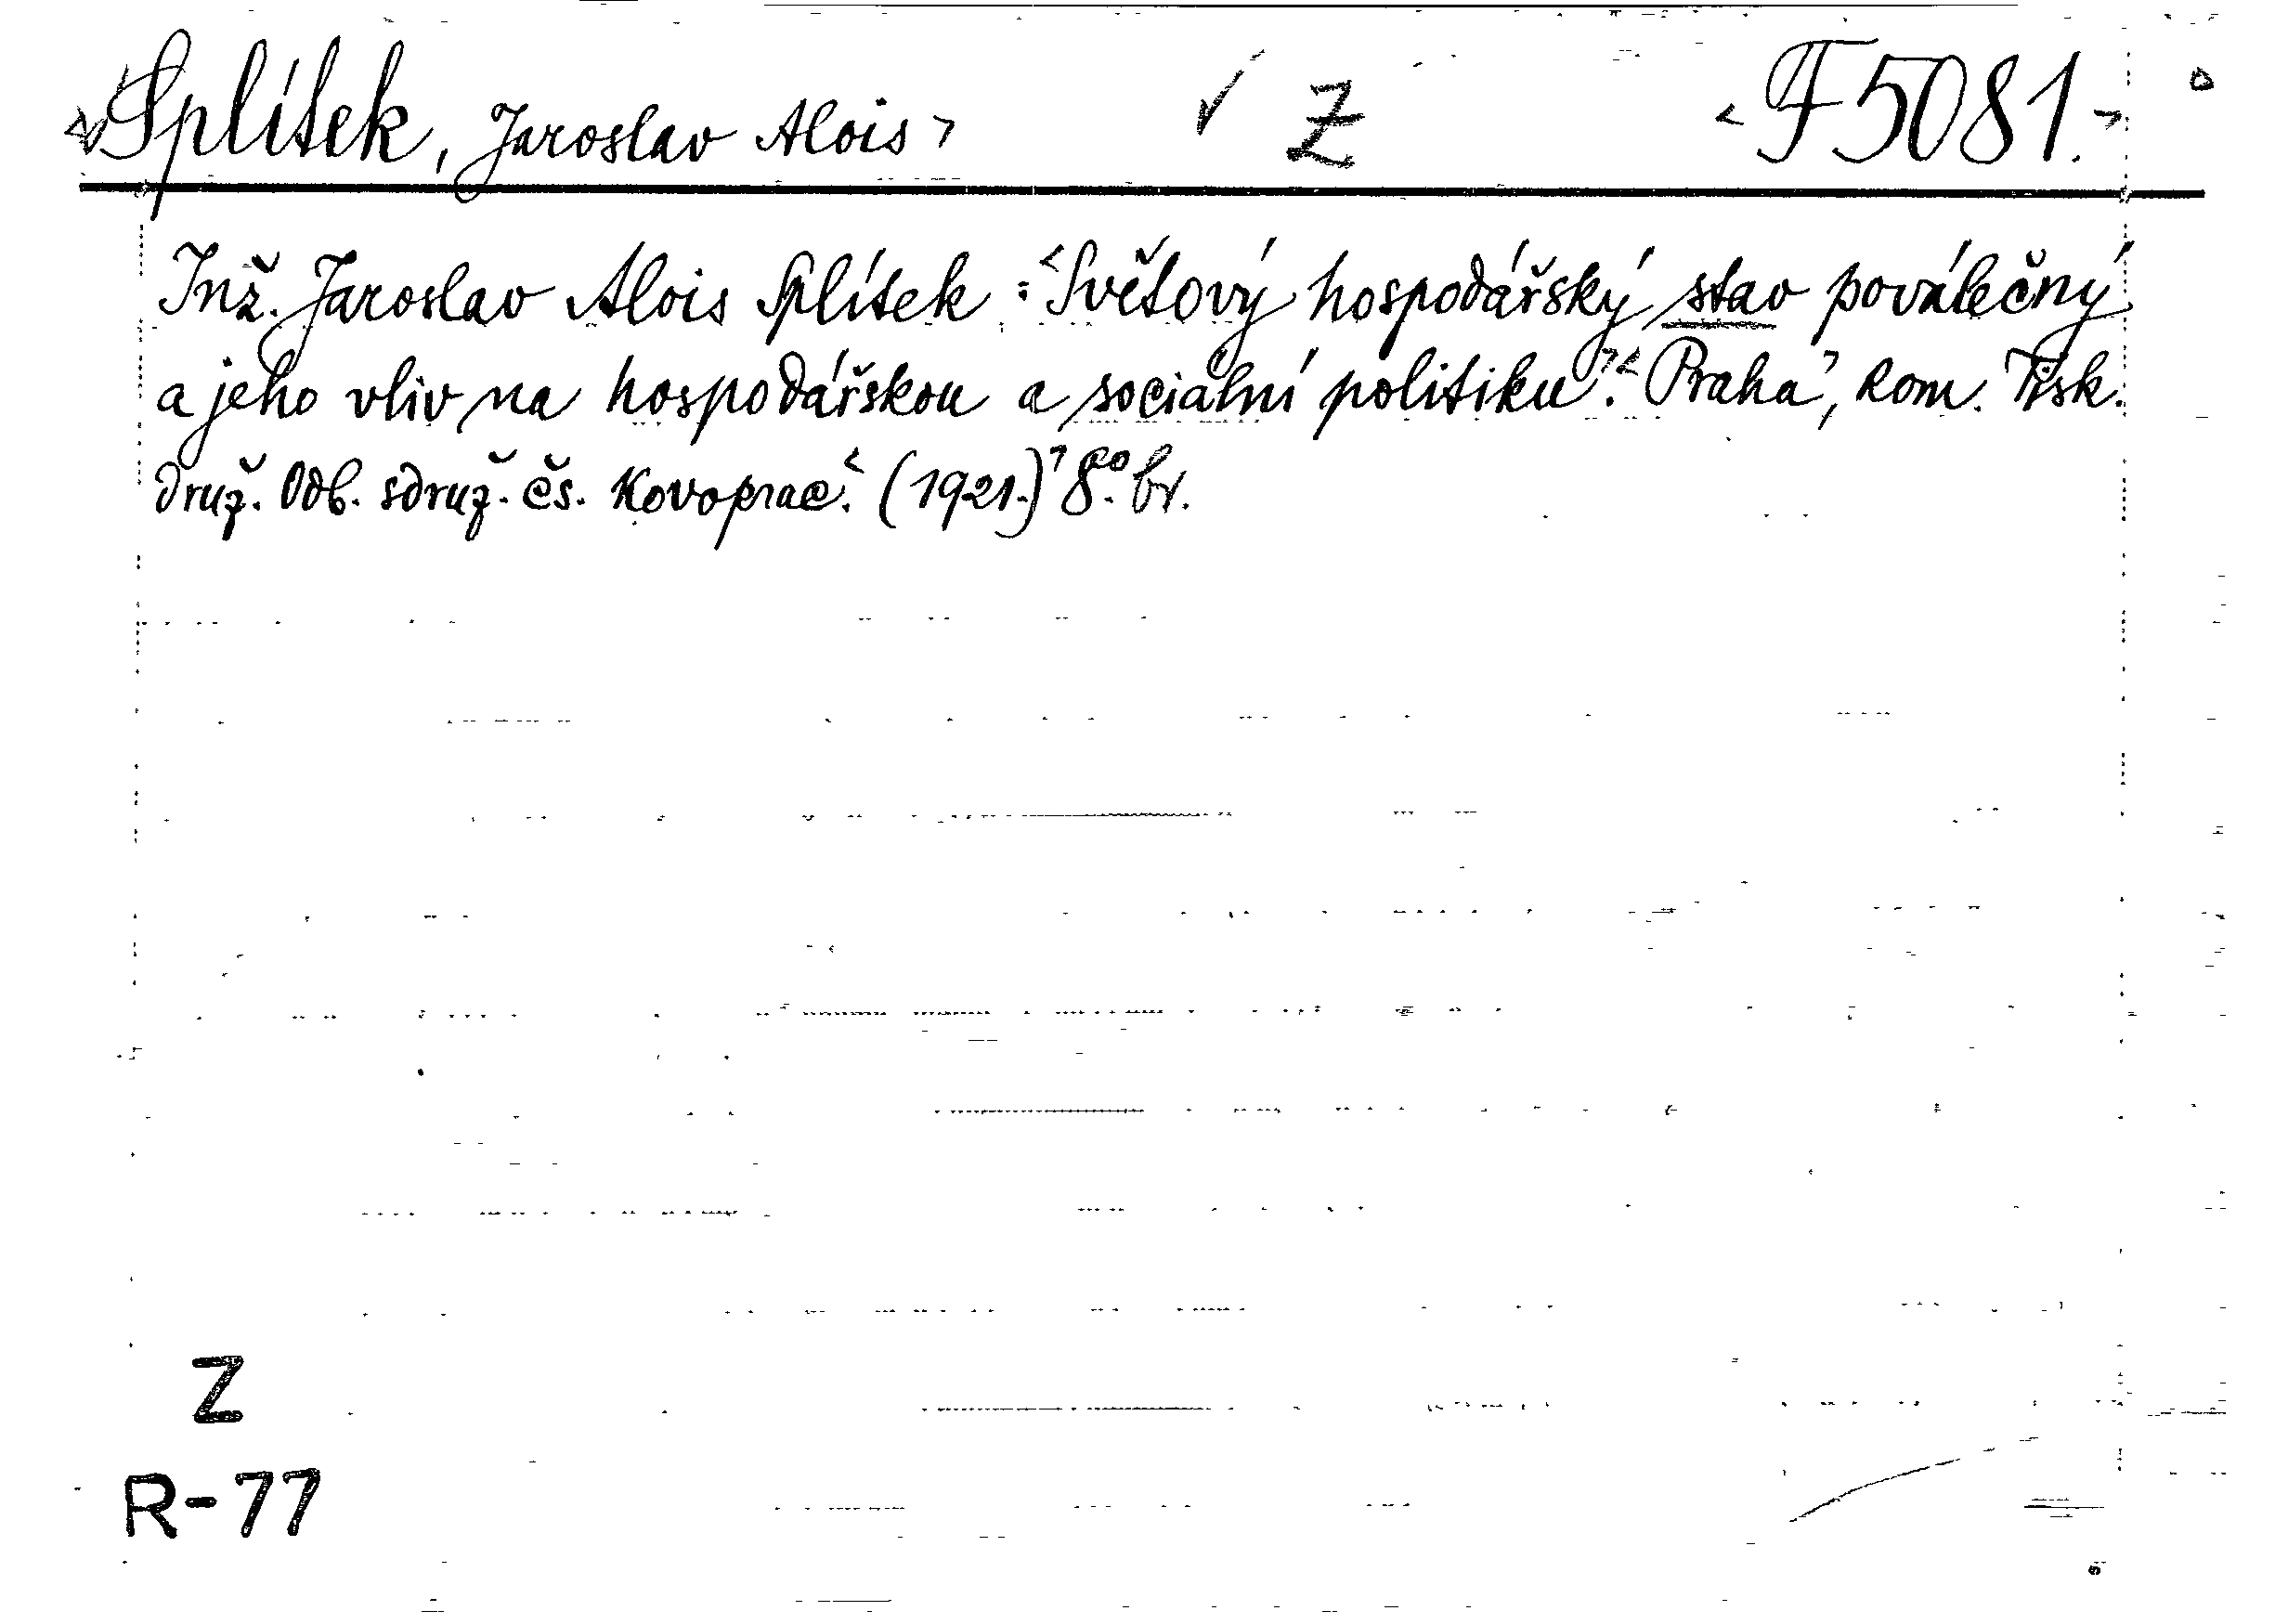 Splítek, Jaroslav Alois Z F 5081.
Inž. Jaroslav Alois Splítek: Světový hospodářský stav poválečný
a jeho vliv na hospodářskou a sociální politiku. Praha, kom. Tisk.
druž. Odb. sdruž. čs. Kovoprac. (1921.) 8.° br.
Z
R-77